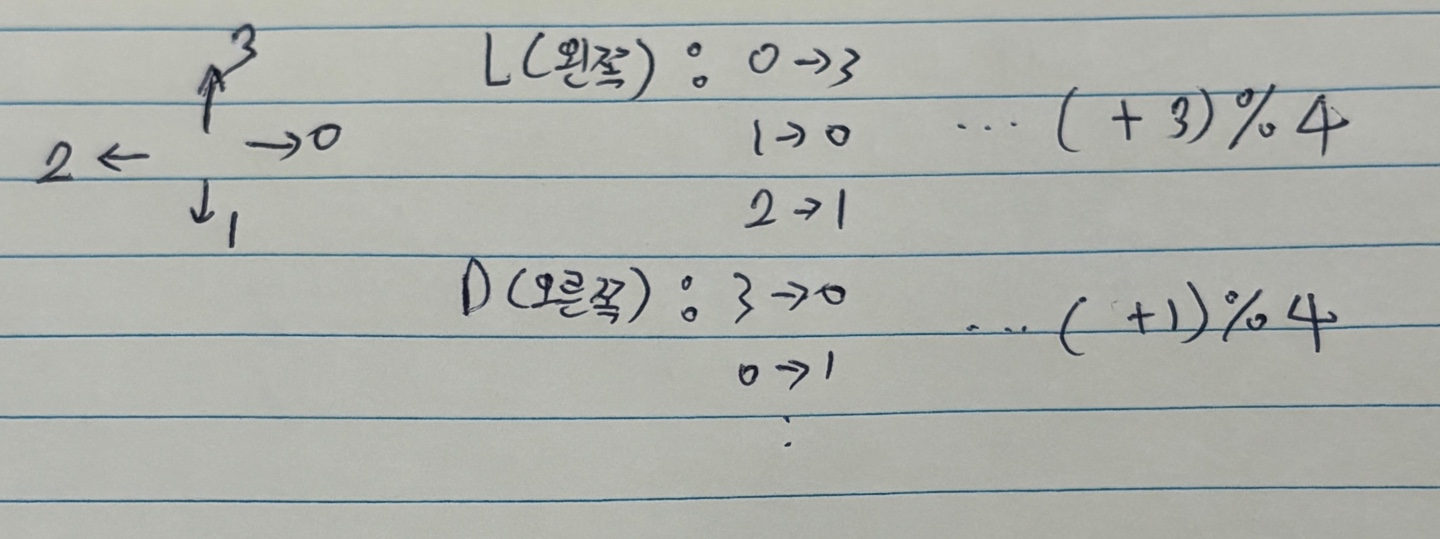 3
2 ← → 0
↓ 1
L(왼쪽) : 0→3
1→0 ... ( +3)%4
2→1
D(오른쪽) : 3→0 ... ( +1)%4
0→1
: